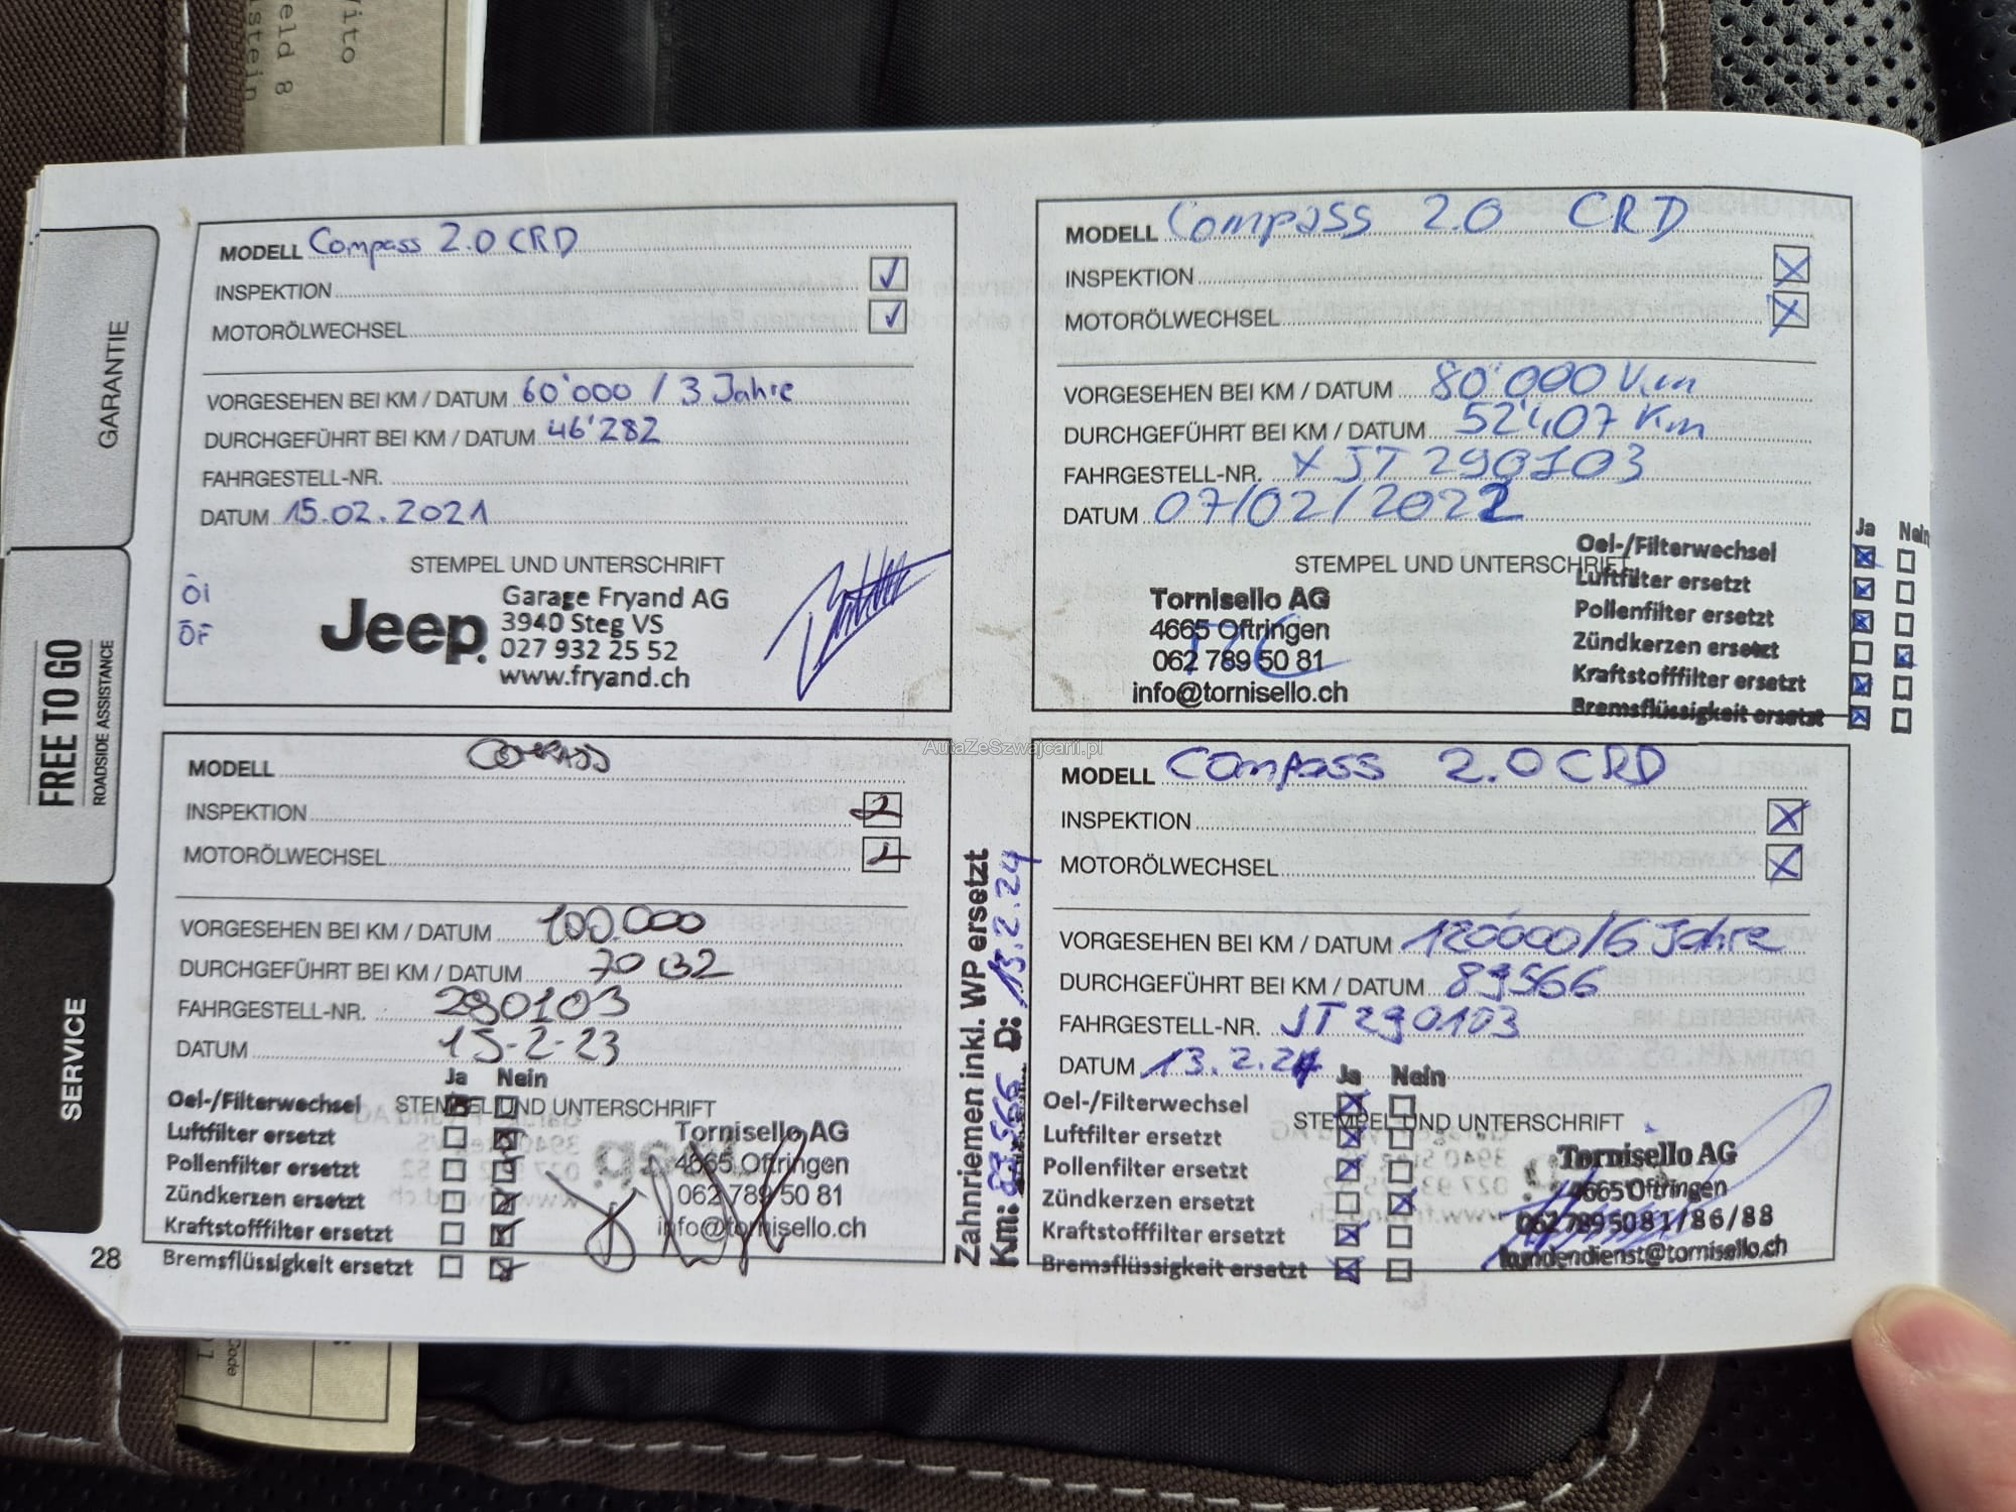 Vito
eld 8
stein
GARANTIE
FREE TO GO
ROADSIDE ASSISTANCE
SERVICE
28
MODELL Compass 2.0 CRD
INSPEKTION
MOTORÖLWECHSEL
VORGESEHEN BEI KM / DATUM 60'000 / 3 Jahre
DURCHGEFÜHRT BEI KM / DATUM 46'282
FAHRGESTELL-NR.
DATUM 15.02.2021
STEMPEL UND UNTERSCHRIFT
ÖL
ÖF
Jeep
Garage Fryand AG
3940 Steg VS
027 932 25 52
www.fryand.ch
MODELL Compass 2.0 CRD
INSPEKTION
MOTORÖLWECHSEL
VORGESEHEN BEI KM / DATUM 80'000 Km
DURCHGEFÜHRT BEI KM / DATUM 52'407 Km
FAHRGESTELL-NR. XJT290103
DATUM 07/02/2022
STEMPEL UND UNTERSCHRIFT
Tornisello AG
4665 Oftringen
062 789 50 81
info@tornisello.ch
Ja Nein
Oel-/Filterwechsel
Luftfilter ersetzt
Pollenfilter ersetzt
Zündkerzen ersetzt
Kraftstofffilter ersetzt
Bremsflüssigkeit ersetzt
AutaZeSzwajcarii.pl
MODELL Compass
INSPEKTION
MOTORÖLWECHSEL
VORGESEHEN BEI KM / DATUM 100.000
DURCHGEFÜHRT BEI KM / DATUM
FAHRGESTELL-NR. 290103
DATUM 15-2-23
Ja Nein
STEMPEL UND UNTERSCHRIFT
Oel-/Filterwechsel
Luftfilter ersetzt
Pollenfilter ersetzt
Zündkerzen ersetzt
Kraftstofffilter ersetzt
Bremsflüssigkeit ersetzt
Tornisello AG
4665 Oftringen
062 789 50 81
info@tornisello.ch
Zahnriemen inkl. WP ersetzt
Km: D: 13.2.24
MODELL Compass 2.0 CRD
INSPEKTION
MOTORÖLWECHSEL
VORGESEHEN BEI KM / DATUM 120000/6 Jahre
DURCHGEFÜHRT BEI KM / DATUM 89566
FAHRGESTELL-NR. JT290103
DATUM 13.2.24
Ja Nein
STEMPEL UND UNTERSCHRIFT
Oel-/Filterwechsel
Luftfilter ersetzt
Pollenfilter ersetzt
Zündkerzen ersetzt
Kraftstofffilter ersetzt
Bremsflüssigkeit ersetzt
Tornisello AG
4665 Oftringen
062 789 50 81/86/88
kundendienst@tornisello.ch
Code